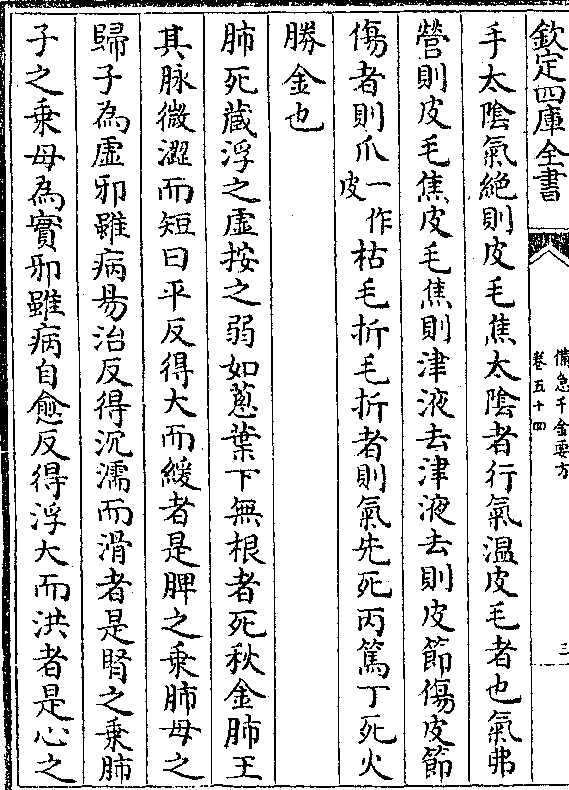 欽定四庫全書
備急千金要方
卷五十四
三
手太陰氣絶則皮毛焦太陰者行氣溫皮毛者也氣弗
營則皮毛焦皮毛焦則津液去津液去則皮節傷皮節
傷者則爪一作皮枯毛折毛折者則氣先死丙篤丁死火
勝金也
肺死藏浮之虛按之弱如葱葉下無根者死秋金肺王
其脉微澀而短曰平反得大而緩者是脾之乗肺母之
歸子為虛邪雖病易治反得沉濡而滑者是腎之乗肺
子之乗母為實邪雖病自愈反得浮大而洪者是心之